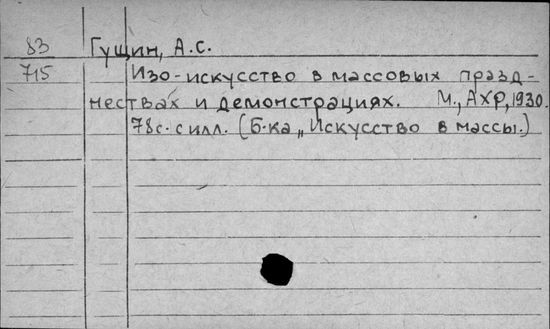 83 Гущин, А.С.
715 Изо-искусство в массовых празд-
нествах и демонстрациях. М., АХР, 1930.
78с. с илл. (Б-ка „Искусство в массы.)